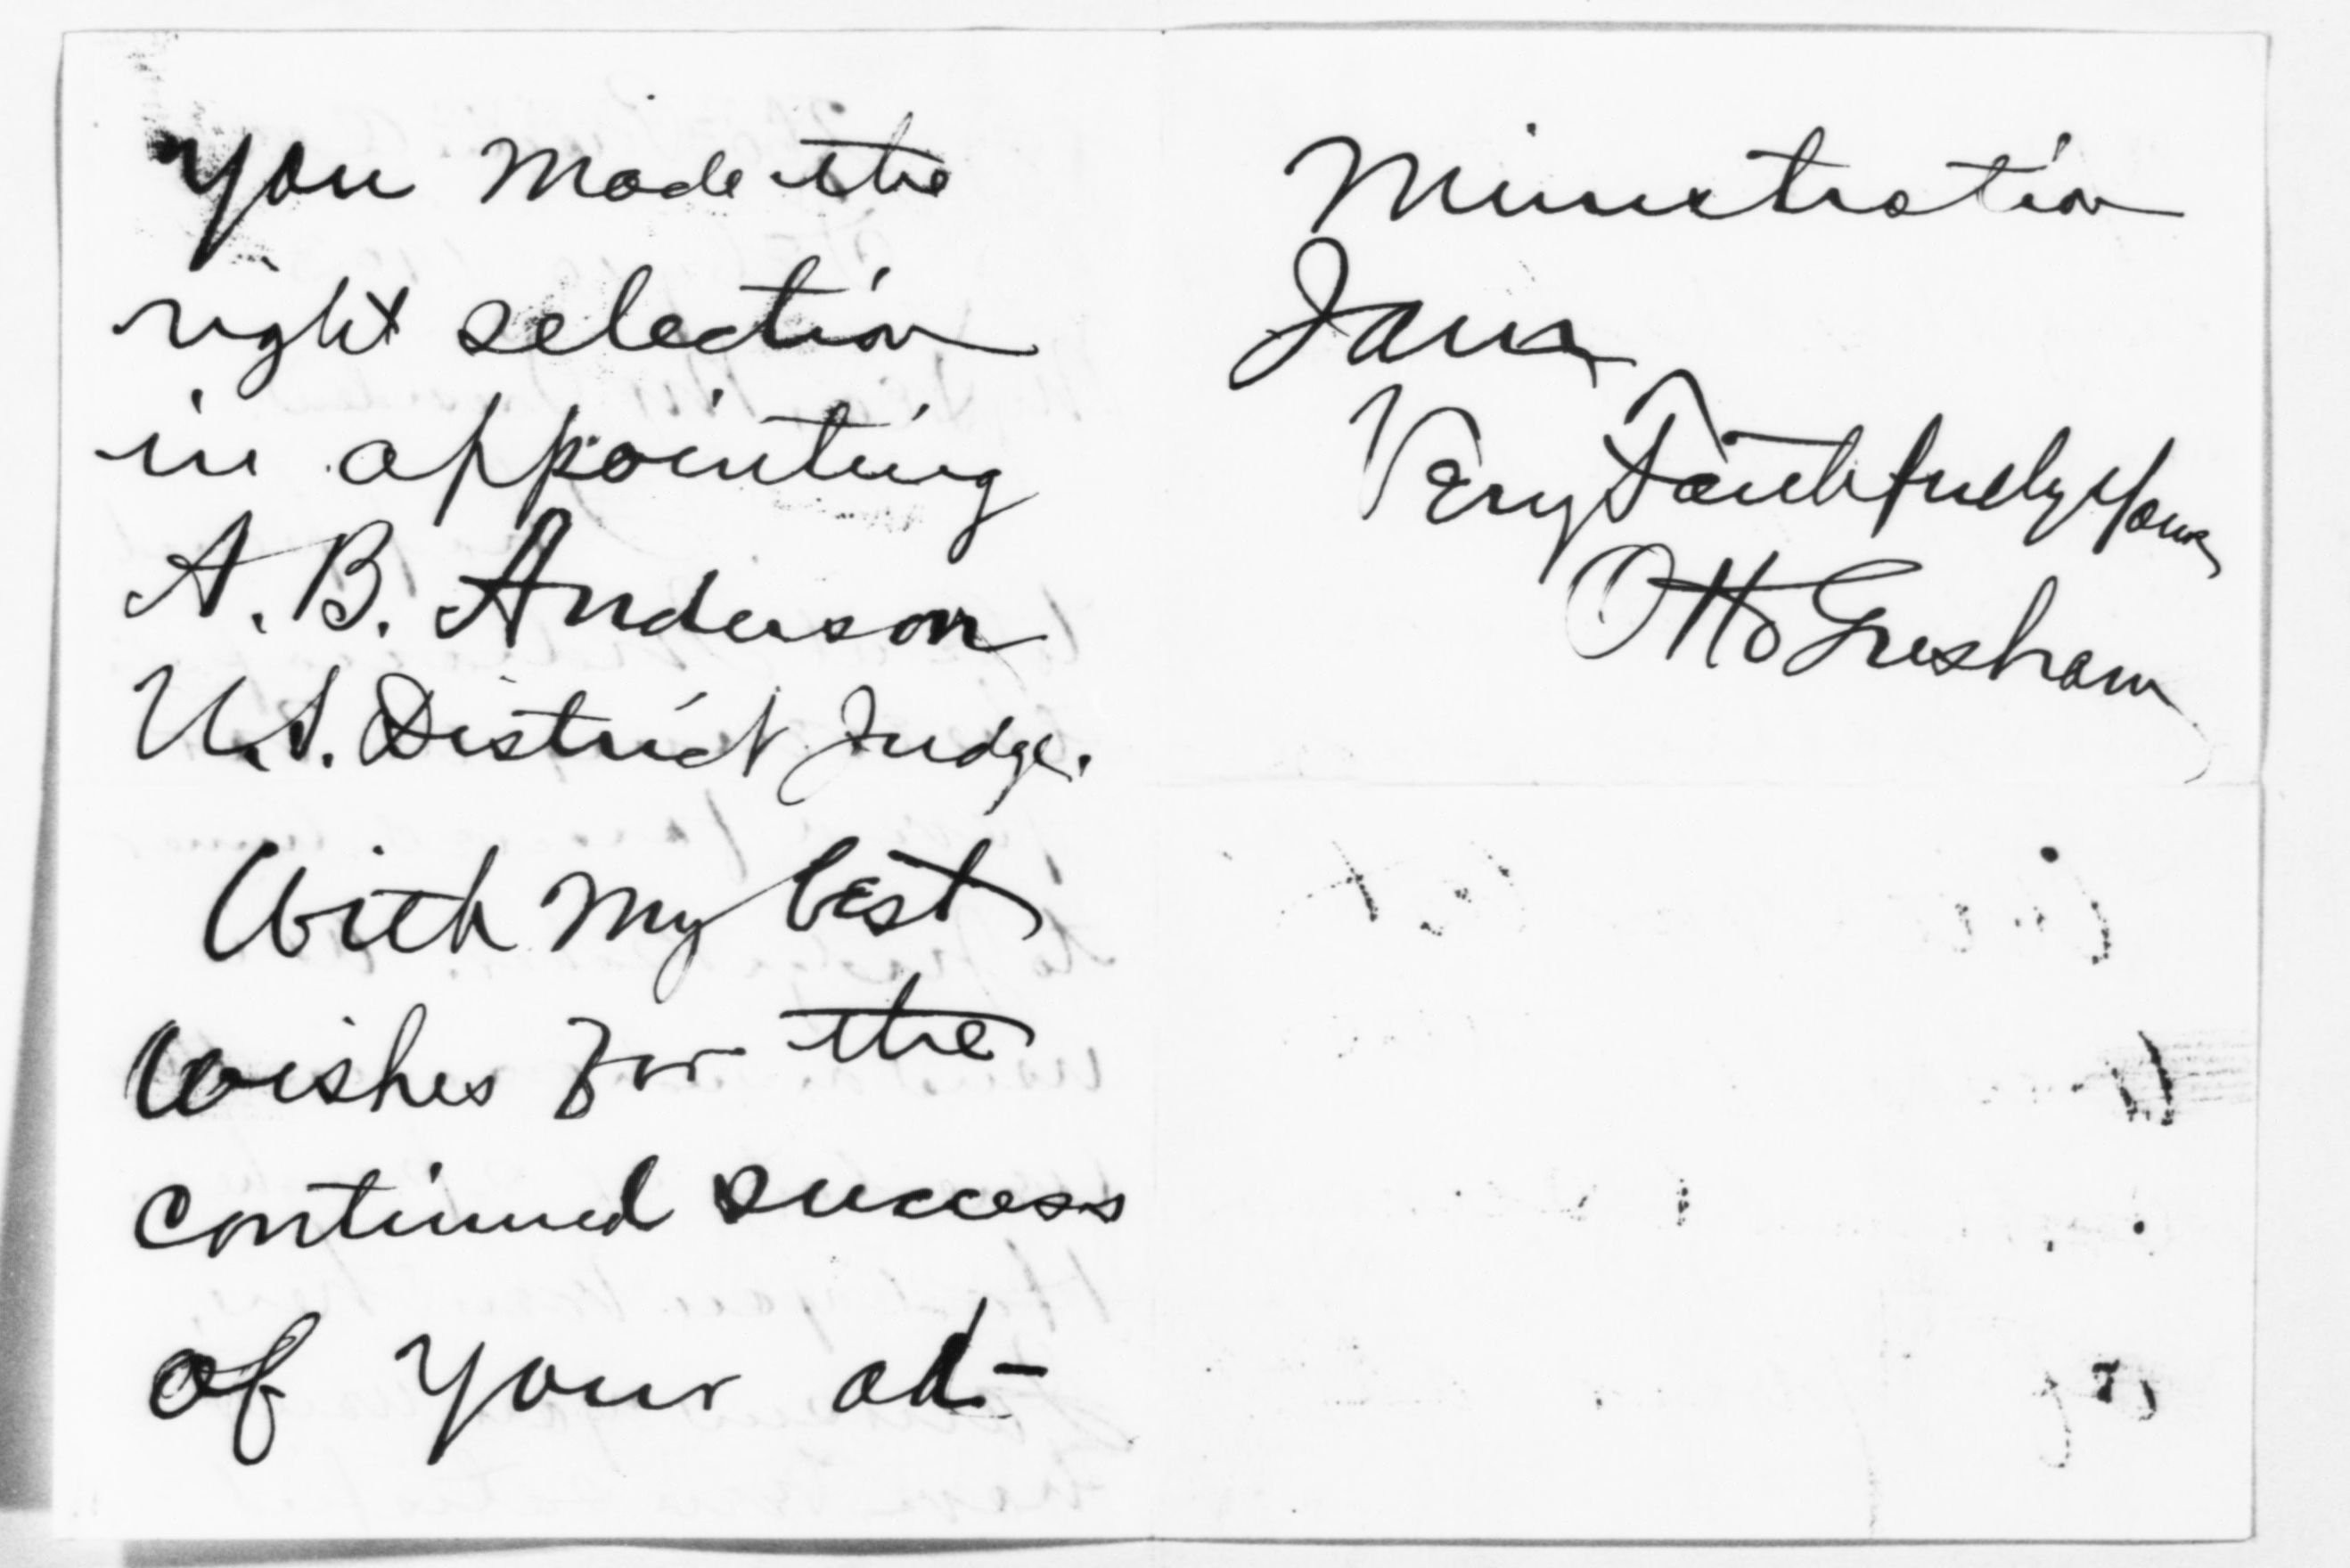 you made the
right selection
in appointing
A. B. Anderson
U.S. District Judge.
With my best
wishes for the
continued success
of your ad-
ministration
I am
Very Faithfully Yours
Otto Gresham